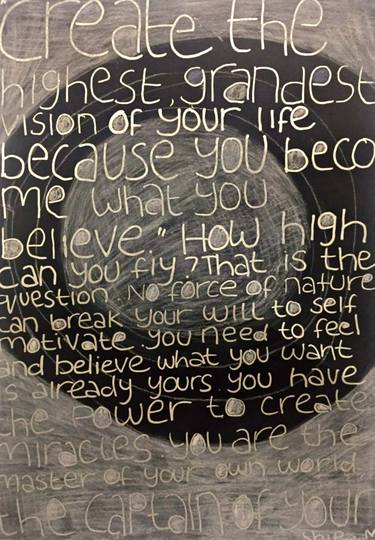 create the
highest, grandest
vision of your life
because you beco
me what you
believe." How high
can you fly? That is the
question. No force of nature
can break your will to self
motivate. you need to feel
and believe what you want
is already yours. you have
the power to create
miracles you are the
master of your own world,
the captain of your
ship